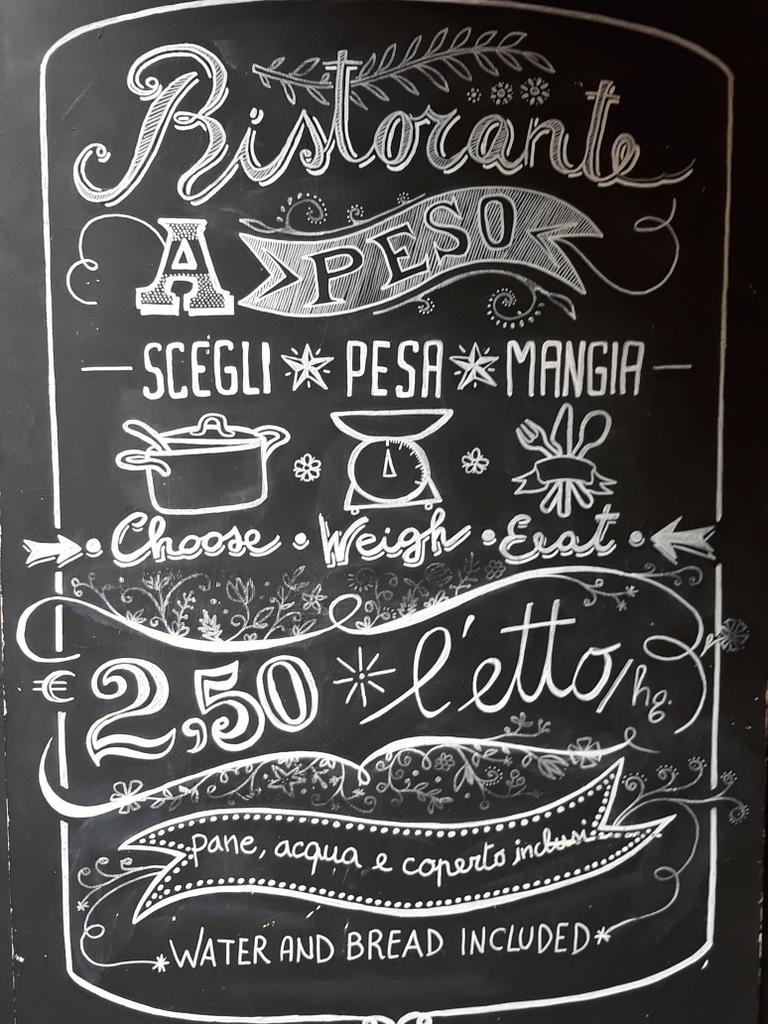 Ristorante
A PESO
SCEGLI PESA MANGIA
Choose Weigh Eat
€ 2,50 l'etto/hg.
pane, acqua e coperto inclusi
*WATER AND BREAD INCLUDED*